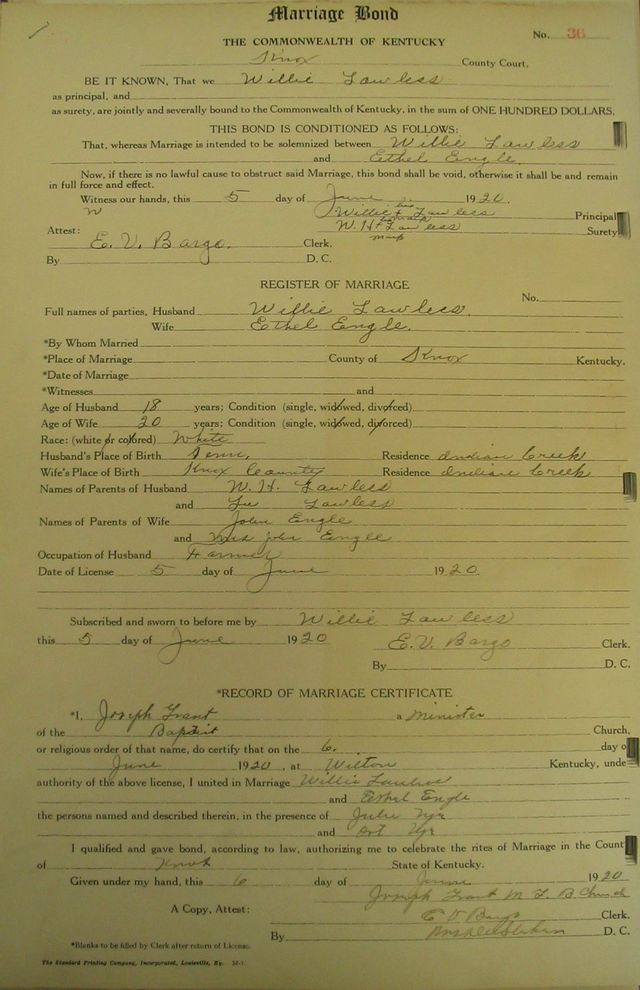 Marriage Bond
No. 36
THE COMMONWEALTH OF KENTUCKY
Knox County Court.
BE IT KNOWN, That we Willie Lawless
as principal, and
as surety, are jointly and severally bound to the Commonwealth of Kentucky, in the sum of ONE HUNDRED DOLLARS.
THIS BOND IS CONDITIONED AS FOLLOWS:
That, whereas Marriage is intended to be solemnized between Willie Lawless
and Ethel Engle.
Now, if there is no lawful cause to obstruct said Marriage, this bond shall be void, otherwise it shall be and remain
in full force and effect.
Witness our hands, this 5 day of June 1920.
W Willie Lawless Principal
his
W. H + Lawless Surety
mark
Attest: E. V. Bargo. Clerk.
By D. C.
REGISTER OF MARRIAGE
No.
Full names of parties, Husband Willie Lawless.
Wife Ethel Engle.
*By Whom Married
*Place of Marriage County of Knox Kentucky.
*Date of Marriage
*Witnesses and
Age of Husband 18 years; Condition (single, widowed, divorced)
Age of Wife 20 years; Condition (single, widowed, divorced)
Race: (white or colored) White
Husband's Place of Birth Tenn. Residence Indian Creek
Wife's Place of Birth Knox County Residence Indian Creek
Names of Parents of Husband W. H. Lawless
and Lu Lawless
Names of Parents of Wife John Engle
and Mrs John Engle
Occupation of Husband Farmer
Date of License 5 day of June 1920
Subscribed and sworn to before me by Willie Lawless
this 5 day of June 1920 E. V. Bargo Clerk.
By D. C.
*RECORD OF MARRIAGE CERTIFICATE
*I, Joseph Grant a Minister
of the Baptist Church,
or religious order of that name, do certify that on the 6. day o
June 1920, at Wilton Kentucky, unde
authority of the above license, I united in Marriage Willie
and Ethel Engle
the persons named and described therein, in the presence of
and
I qualified and gave bond, according to law, authorizing me to celebrate the rites of Marriage in the Count
of Knox State of Kentucky.
Given under my hand, this 6 day of June 1920
Joseph Grant M B Church
A Copy, Attest: E V Bargo Clerk.
By D. C.
*Blanks to be filled by Clerk after return of License.
The Standard Printing Company, Incorporated, Louisville, Ky.